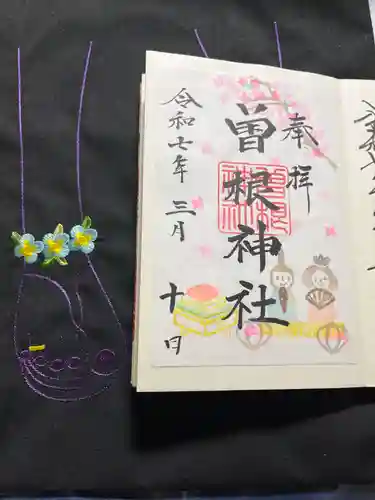 奉拝
曽根神社
令和七年
三月
十日